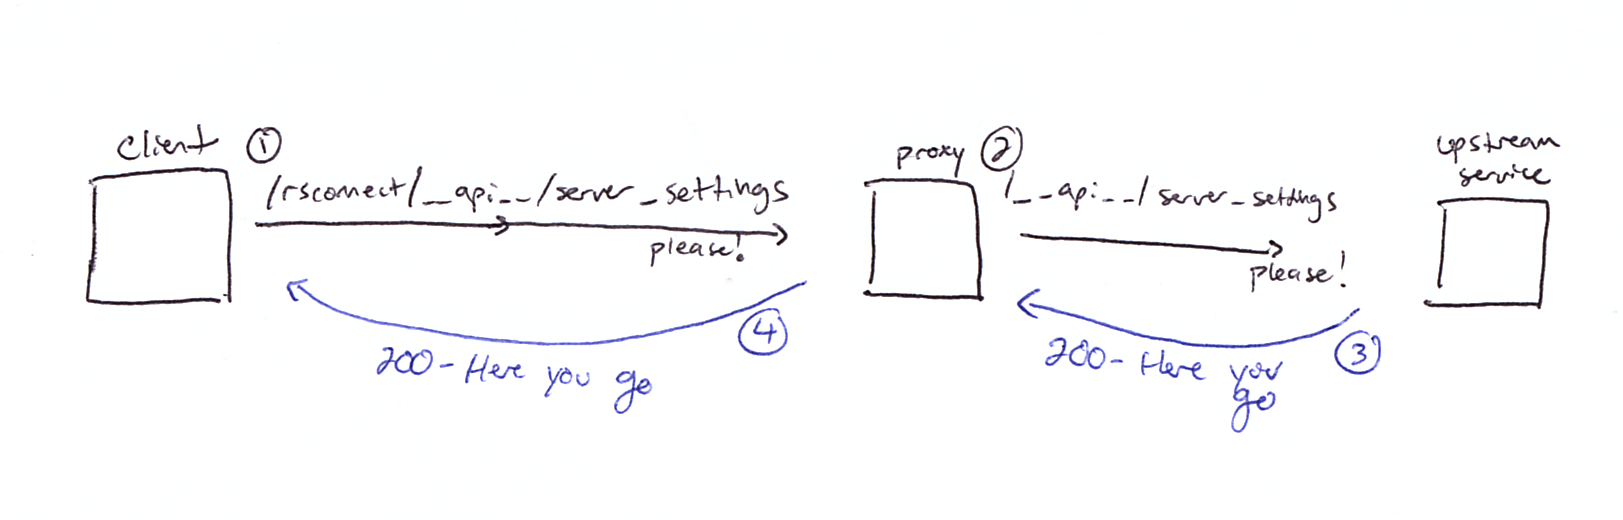 client ①
/rsconnect/__api__/server_settings
please!
proxy ②
/__api__/server_settings
please!
upstream
service
④
200 - Here you go
③
200 - Here you
go